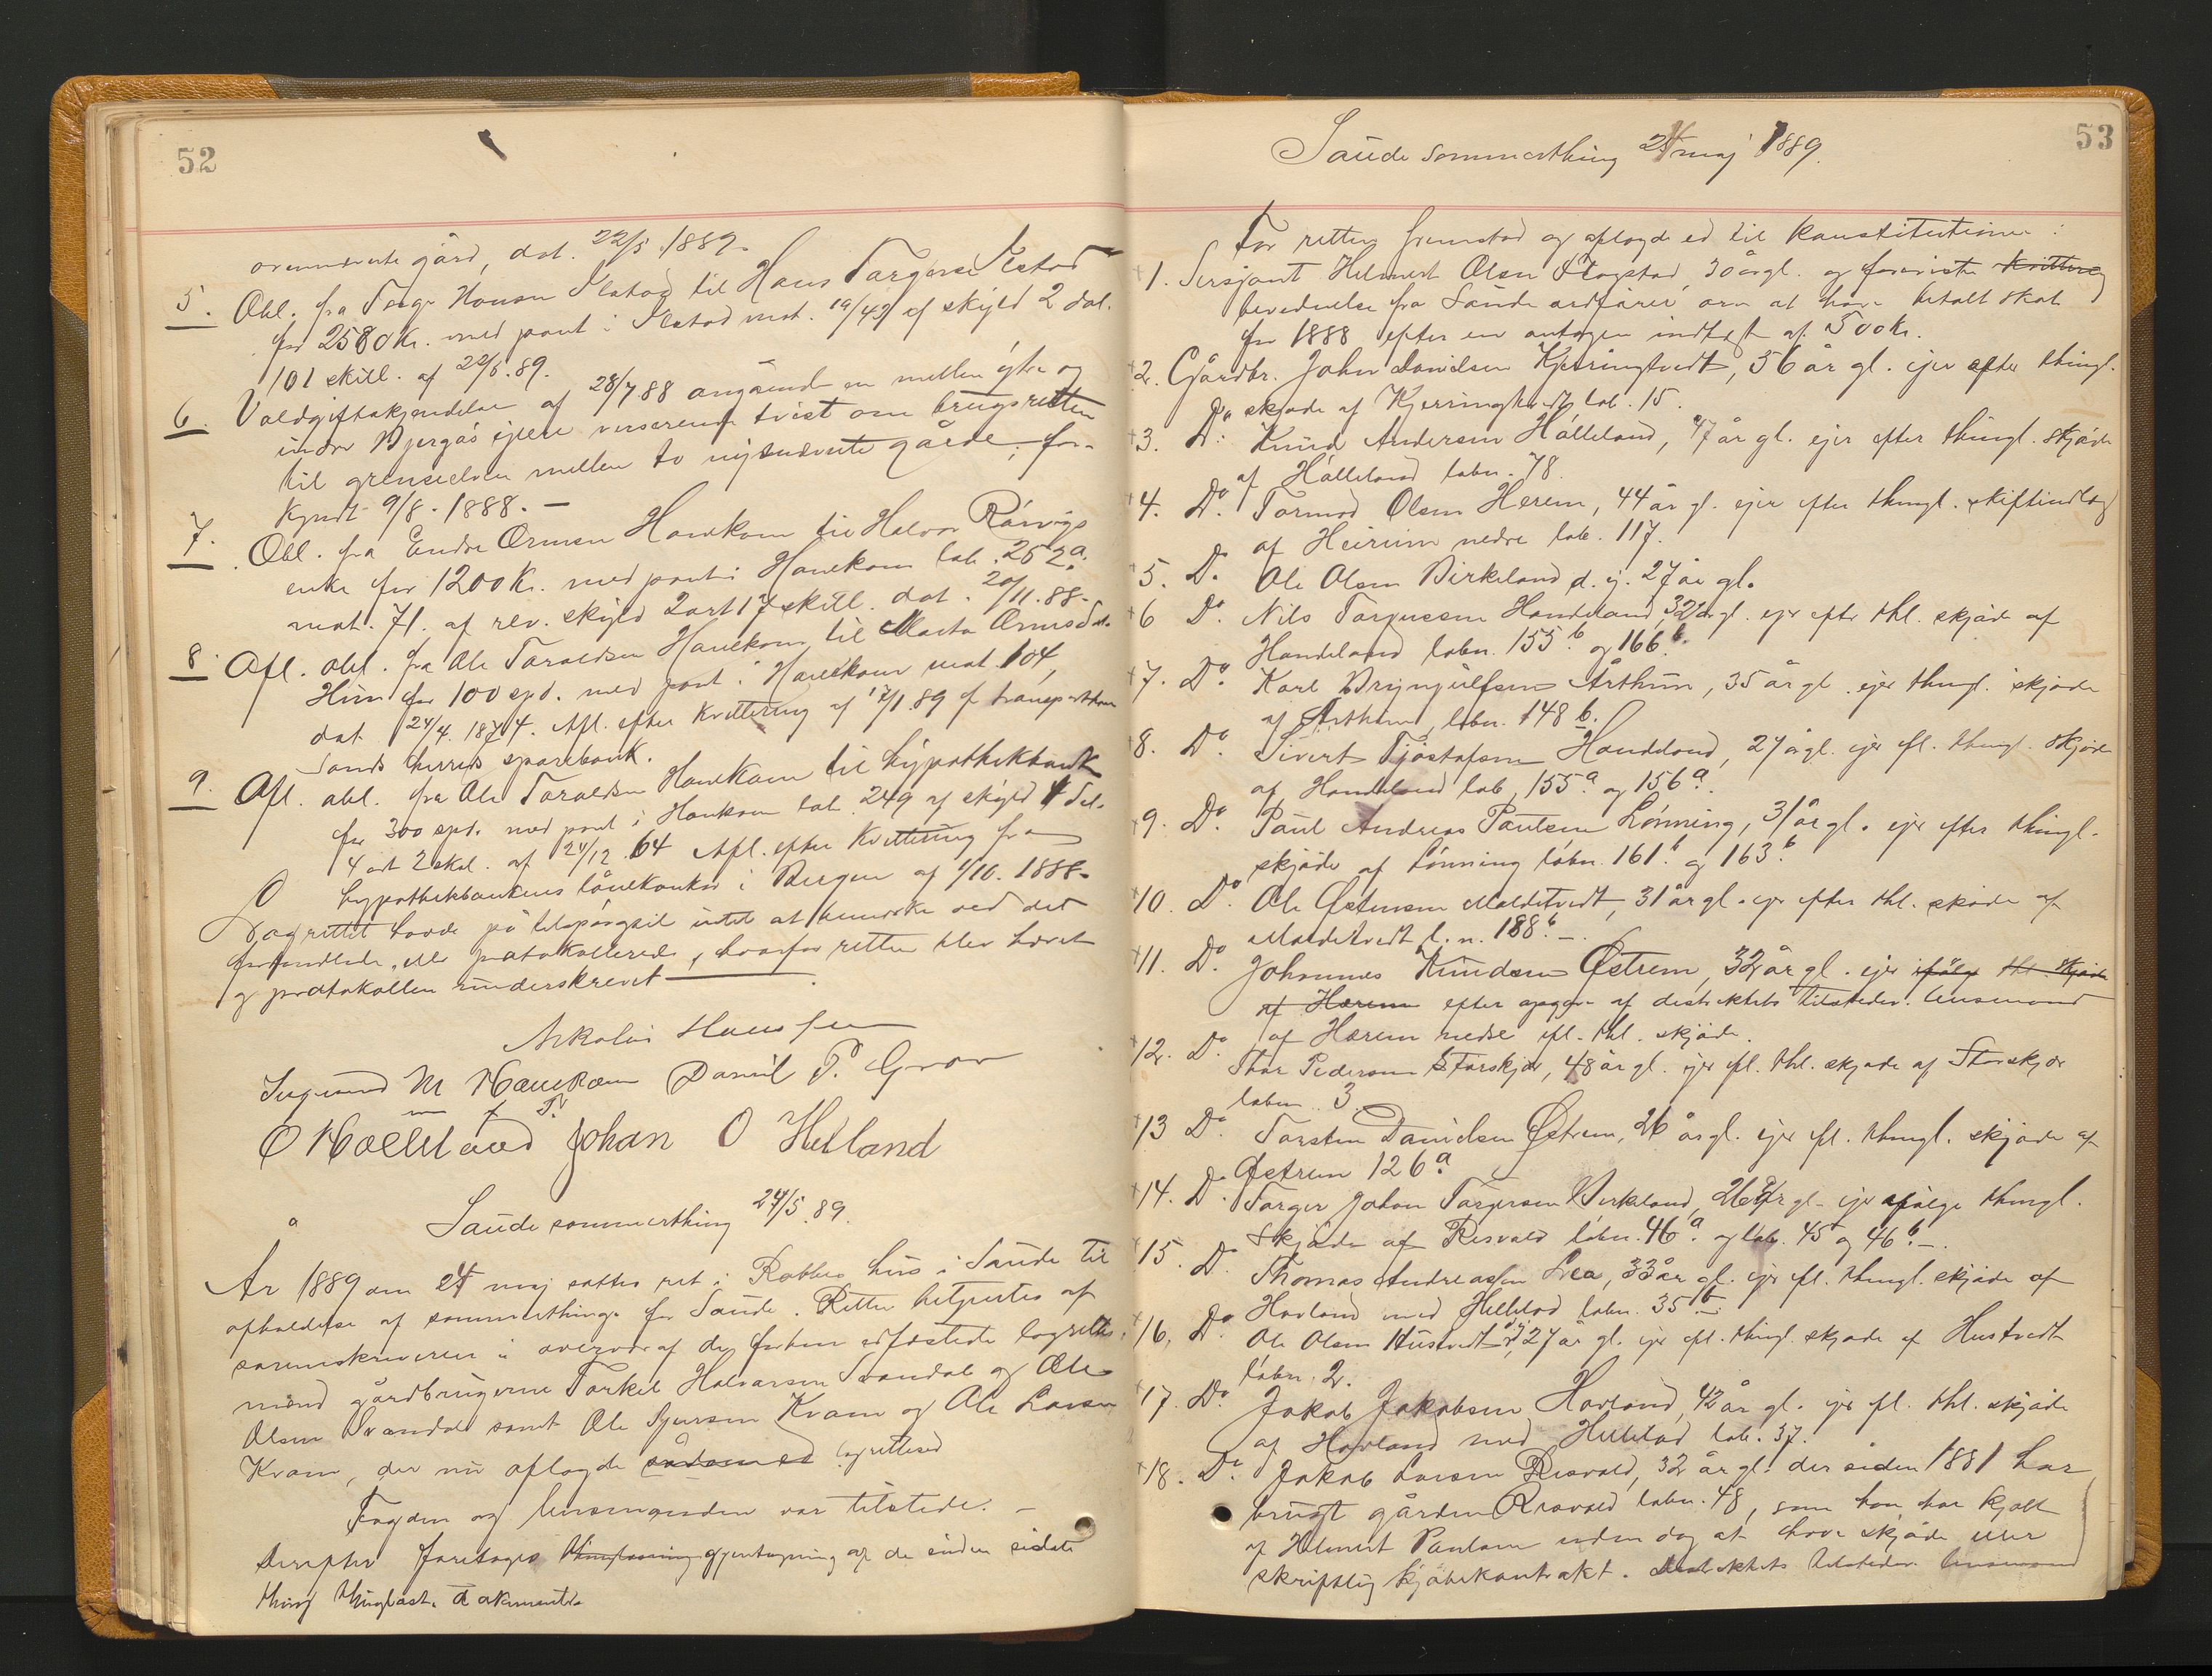 52
ovennævnte gård, dat. 22/5 1889.
5. Obl. fra Torge Hansen Ilstad til Hans Torgersen Ilstad
for 2580 Kr. med pant i Ilstad mat. 19/49 af skyld 2 dal.
101 skill. af 22/5.89.
6. Voldgiftskjendelse af 28/7 88 angående en mellem ytre og
indre Bjergås eiere verserende tvist om brugsretten
til grenseelven mellem to nysnævnte gårde, for-
kyndt 9/8. 1888. —
7. Obl. fra Endre Ormsen Havekom til Halvor Rörvigs
enke for 1200 Kr. med pant i Havekom lob. 252a.
mat. 71. af rev. skyld 2 ort 17 skill. dat. 20/11.88.
8 Afl. obl. fra Ole Taraldsen Havekom til Marta Ormsdat.
Hiim for 100 spd. med pant i Havekom mat. 104,
dat. 24/4. 1874. Afl. efter kvittering af 17/1.89 f transporthav
Sands herreds sparebank.
9. Afl. obl. fra Ole Taraldsen Havekom til hypothekbank
for 300 spd. med pant i Havekom lob. 249 af skyld 4 dal.
4 ort 2 skil. af 24/12.64 Afl. efter kvittering fra
hypothekbankens lånekontor i Bergen af 1/10. 1888.
Lagrettet havde på tilspörgsel intet at bemerke ved det
forhandlede eller protokollerede, hvorfor retten blev hævet
og protokollen underskrevet —
Nikolai Hansen
Sigmund M Havekom Daniel P. Grov
O Hoelland Johan O Helland
Saude sommerthing 24/5.89.
År 1889 den 24 maj sattes ret i Robbes hus i Saude til
afholdelse af sommerthinge for Saude. Retten betjentes af
sorenskriveren i overvær af de forhen edfæstede lagrettes
mænd gårdbrugerne Torkel Halvorsen Svandal og Ole
Olsen Svandal samt Ole Sjursen Kvam og Ole Larsen
Kvam, der nu aflagde lagretteed
Fogden og lensmanden var tilstede. —
Derefter foretoges gjentagning af de siden sidste
thing thinglæste dokumenter
53
Saude sommerthing 24 maj 1889.
For retten fremstod og aflagde ed til konstitutionen:
1. Sersjant Helmert Olsen Slogstad, 30 år gl. og foreviste kvittering
bevidnelse fra Saude ordfører om at have betalt skat
for 1888 efter en antagen indtægt af 500 Kr.
2. Gårdbr. John Danielsen Kjerringtvedt, 56 år gl. ejer efter thingl.
skjøde af Kjerringtvedt lob. 15.
3. Do. Knud Andersen Hålleland, 47 år gl. ejer efter thingl. skjøde
af Hålleland lobn. 78.
4. Do. Tormod Olsen Herem, 44 år gl. ejer efter thingl. skifteudlæg
af Heirim nedre lob. 117.
5. Do. Ole Olsen Birkeland d.y. 27 år gl.
6 Do. Nils Torgersen Handeland, 32 år gl. ejer efter thl. skjøde af
Handeland lobn. 155b og 166b.
7. Do. Karl Brynjulfsen Årthun, 35 år gl. ejer thingl. skjøde
af Årthun, lobn. 148 b.
8. Do. Sivert Tjöstofsen Handeland, 27 år gl. ejer efl. thingl. skjøde
af Handeland lob. 155a og 156a.
9. Do. Paul Andreas Paulsen Lönning, 31 år gl. ejer efter thingl.
skjøde af Lönning löbn. 161b og 163b
10. Do. Ole Østensen Maldetvedt, 31 år gl. ejer efter thl. skøde af
Maldetvedt l.n. 188b. —
11. Do. Johannes Knudsen Østrem, 32 år gl. ejer ifölge thl. skjøde
af Hærem efter opgave af distriktets tilstedev. lensmand
af Hærem nedre efl. thl. skjøde.
12. Do. Thor Pedersen Storskjær, 48 år gl. ejer efl. thl. skjøde af Storskjær
lobn. 3.
13 Do. Torsten Danielsen Østrem, 26 år gl. ejer efl. thingl. skjøde af
Østrem 126a.
14. Do. Torger Johan Torgersen Birkeland, 26 år gl. ejer ifølge thingl.
skjøde af Risvold löbn. 46a. og lob. 45 og 46b. —
15. Do. Thomas Andreassen Lea, 33 år gl. ejer efl. thingl. skjøde af
Hovland med Hellelad lobn. 35b.
16. Do. Ole Olsen Hustvedt d.y. 27 år gl. ejer efl. thingl. skjøde af Hustvedt
löbn. 2.
17. Do. Jakob Jakobsen Hovland, 42 år gl. ejer efl. thl. skjøde
af Hovland med Hellelad lob. 37.
18. Do. Jakob Larsen Risvold, 32 år gl. der siden 1881 har
brugt gården Risvold lobn. 48, som han har kjøbt
af Helmert Paulsen uden dog at have skjøde eller
skriftlig kjøbekontrakt. Distriktets tilstedev. lensmand